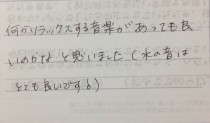 何かリラックスする音楽があっても良
いのかなと思いました(水の音は
とても良いです。)